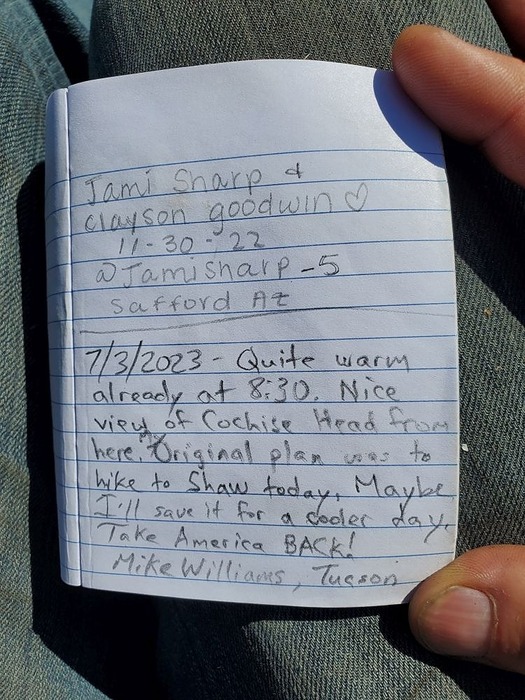 Jami Sharp &
clayson goodwin ♡
11-30-22
@Jamisharp-5
Safford AZ
7/3/2023 - Quite warm
already at 8:30. Nice
view of Cochise Head from
here. My Original plan was to
hike to Shaw today. Maybe
I'll save it for a cooler day.
Take America BACK!
Mike Williams, Tucson